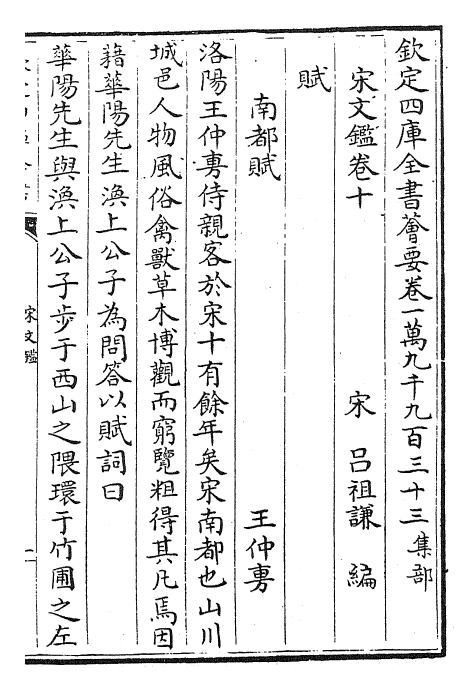 欽定四庫全書薈要卷一萬九千九百三十三集部
宋文鑑卷十 宋 呂祖謙 編
賦
南都賦 王仲旉
洛陽王仲旉侍親客於宋十有餘年矣宋南都也山川
城邑人物風俗禽獸草木博觀而窮覽粗得其凡焉因
藉華陽先生渙上公子為問答以賦詞曰
華陽先生與渙上公子步于西山之隈環于竹圃之左
宋文鑑